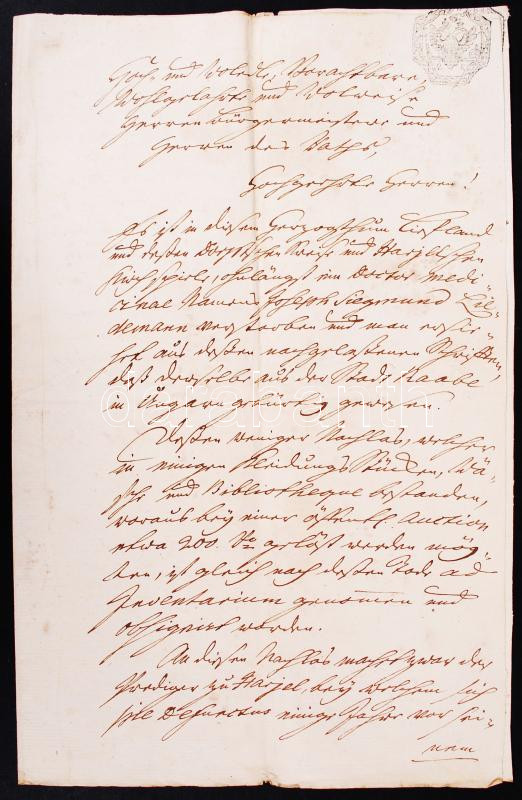 Hoch- und Woledle, Vorachtbare,
Wohlgelahrte und Wolweise
Herren Bürgermeistere und
Herren des Raths,
Hochgeehrte Herren!
Es ist in diesem Herzogthum Liefland
und deßen Dorptschen Kreise und Harjelschen
Kirchspiele, ohnlängst ein Doctor Medi-
cinae Namens Joseph Siegmund Lin-
demann verstorben und man ersie-
het aus deßen nachgelaßenen Schrifften,
daß derselbe aus der Stadt Raabe
in Ungern gebürtig gewesen.
Deßen weniger Nachlas, welcher
in einigen Kleidungs Stücken, Wä-
sche und Bibliotheque bestanden,
woraus bey einer öffentl. Auction
etwa 200 gelöst werden mög-
ten, ist gleich nach deßen Tode ad
Inventarium genommen und
obsigniret worden.
An diesen Nachlas macht zwar der
Prediger zu Harjel, bey welchem sich
iste Defunctus einige Jahre vor sei-
nem